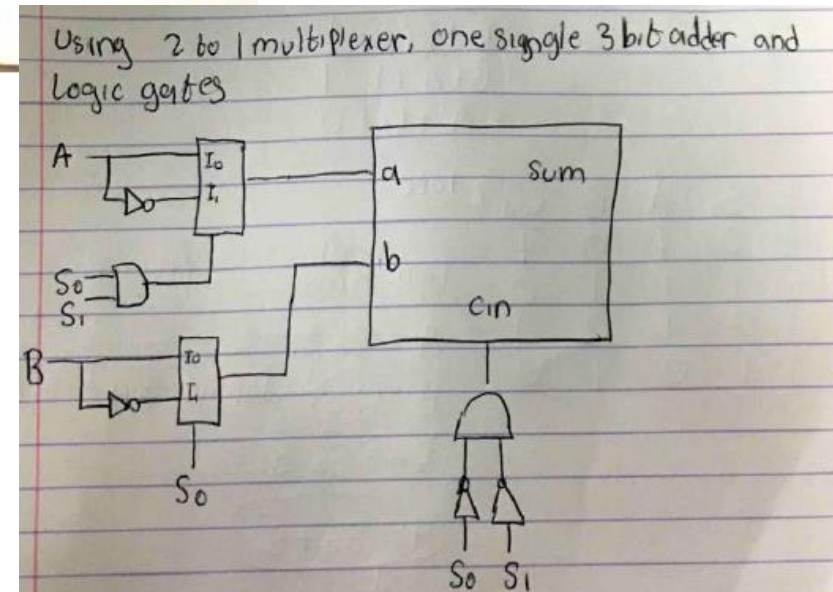 Using 2 to 1 multiplexer, one signgle 3 bit adder and
Logic gates
A
I0
I1
a
sum
b
S0
S1
cin
B
I0
I1
S0
S0 S1